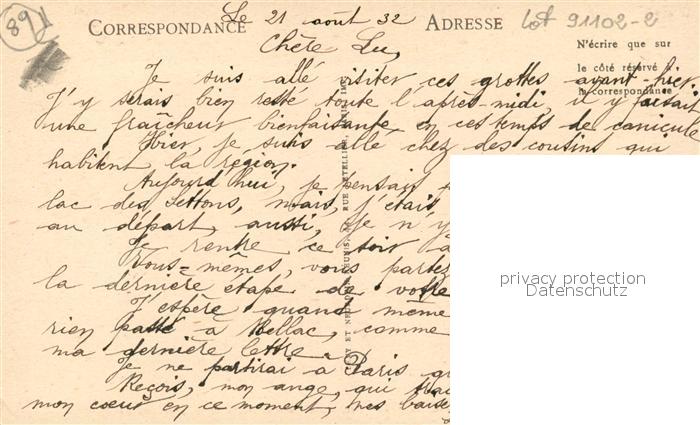 89
Le 21 août 32
CORRESPONDANCE
ADRESSE
Lot 91102-2
N'écrire que sur
le côté réservé à
la correspondance
Chère Lu,
Je suis allé visiter ces grottes avant-hier.
J'y serais bien resté toute l'après-midi, il y faisait
une fraîcheur bienfaisante en ces temps de canicule
Hier, je suis allé chez des cousins qui
habitent la région.
Aujourd'hui, je pensais
lac des Settons, mais, j'étais
au départ, aussi, je n'y
Je rentre ce soir à
Vous-mêmes, vous partez
la dernière étape de votre
J'espère quand même
rien passé à Bellac, comme
ma dernière lettre.
Je ne partirai à Paris
Reçois, mon ange, qui
mon cœur en ce moment, mes
privacy protection
Datenschutz